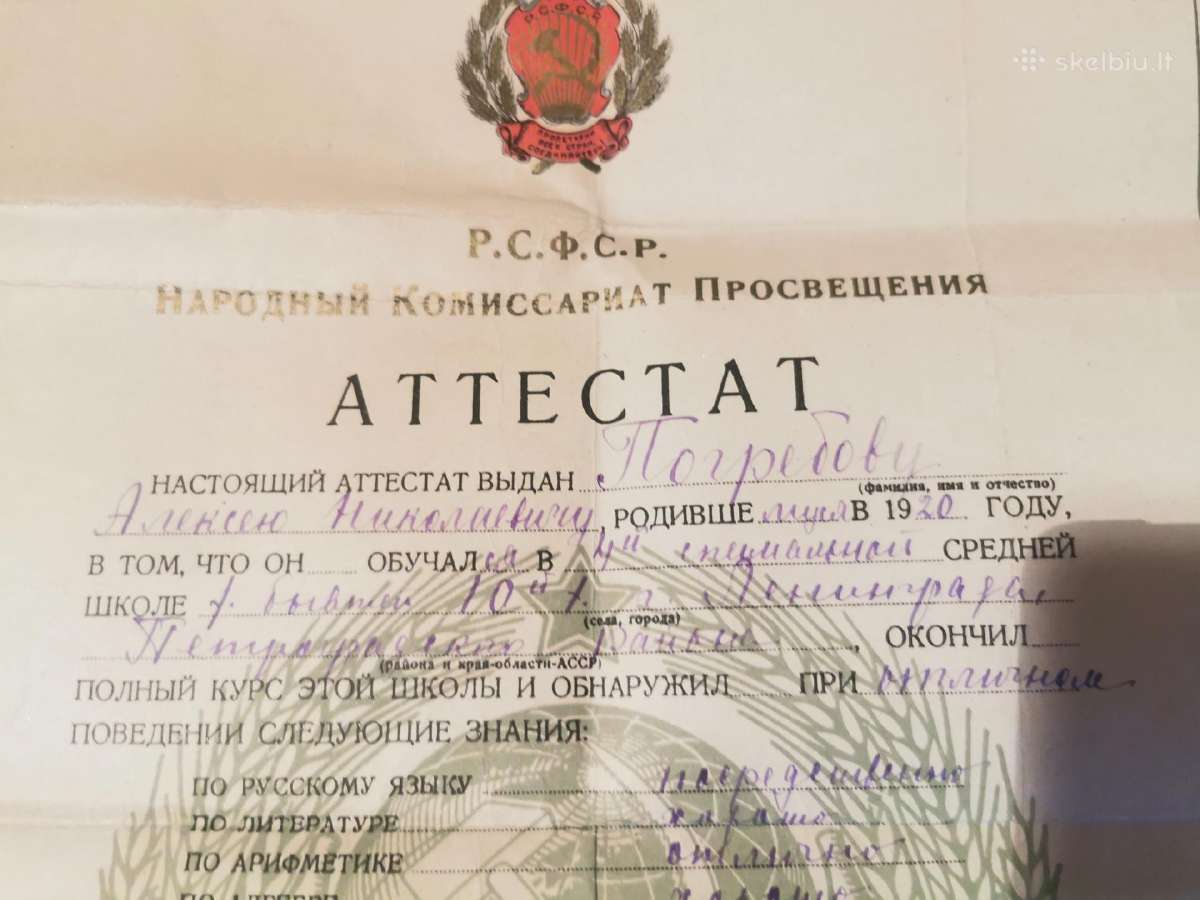 skelbiu.lt
Р.С.Ф.С.Р.
ПРОЛЕТАРИИ
ВСЕХ СТРАН,
СОЕДИНЯЙТЕСЬ
Р.С.Ф.С.Р.
НАРОДНЫЙ КОМИССАРИАТ ПРОСВЕЩЕНИЯ
АТТЕСТАТ
НАСТОЯЩИЙ АТТЕСТАТ ВЫДАН Погребову
(фамилия, имя и отчество)
Алексею Николаевичу, РОДИВШЕмуся В 1920 ГОДУ,
В ТОМ, ЧТО ОН ОБУЧАЛся В "4" специальной СРЕДНЕЙ
ШКОЛЕ /. бывшей 10ой/. г. Ленинграда,
(села, города)
Петроградского района, ОКОНЧИЛ
(района и края-области-АССР)
ПОЛНЫЙ КУРС ЭТОЙ ШКОЛЫ И ОБНАРУЖИЛ ПРИ отличном
ПОВЕДЕНИИ СЛЕДУЮЩИЕ ЗНАНИЯ:
ПО РУССКОМУ ЯЗЫКУ посредственно
ПО ЛИТЕРАТУРЕ хорошо
ПО АРИФМЕТИКЕ отлично
ПО АЛГЕБРЕ хорошо